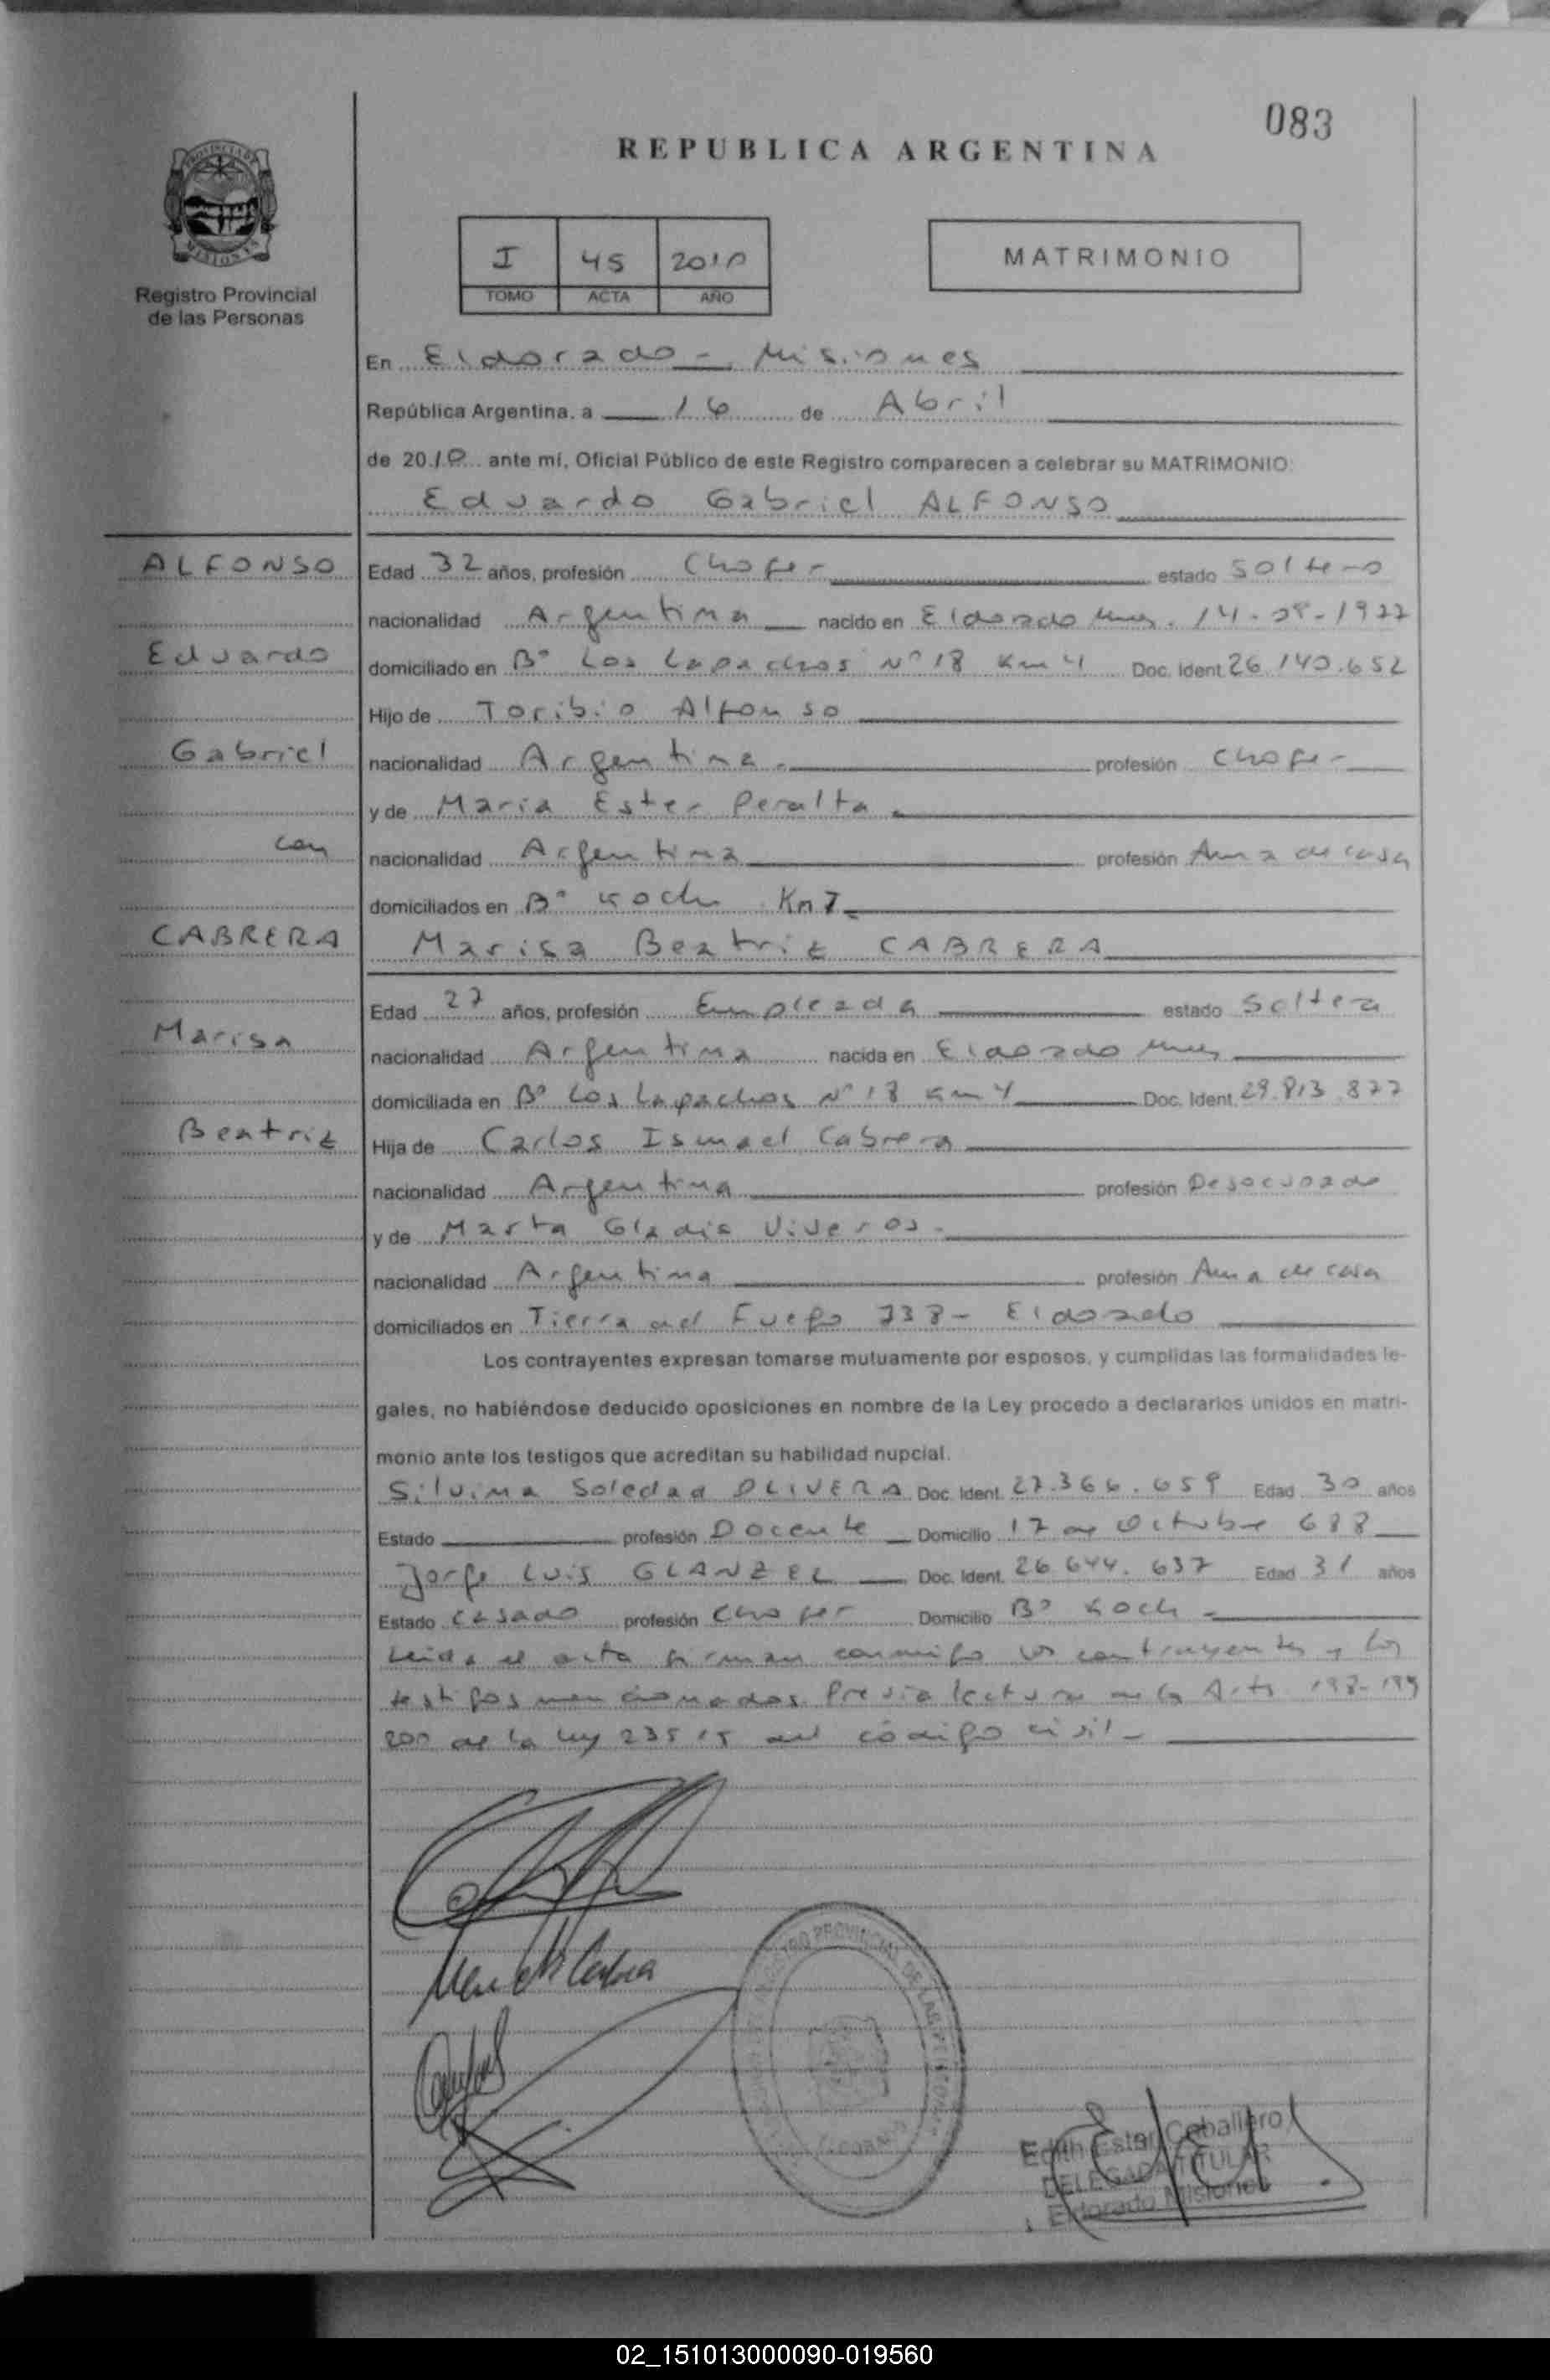 083
REPUBLICA ARGENTINA
I 45 2010
TOMO ACTA AÑO
MATRIMONIO
PROVINCIA DE
MISIONES
Registro Provincial
de las Personas
En Eldorado - Misiones
República Argentina, a 16 de Abril
de 2010 ante mí, Oficial Público de este Registro comparecen a celebrar su MATRIMONIO:
Eduardo Gabriel ALFONSO
ALFONSO
Eduardo
Gabriel
con
CABRERA
Marisa
Beatriz
Edad 32 años, profesión Chofer estado Soltero
nacionalidad Argentina nacido en Eldorado Mnes. 14-08-1977
domiciliado en Bº Los Lapachos Nº 18 Km 4 Doc. Ident. 26.140.652
Hijo de Toribio Alfonso
nacionalidad Argentina profesión Chofer
y de Maria Ester Peralta
nacionalidad Argentina profesión Ama de casa
domiciliados en Bº Koch Km 7
Marisa Beatriz CABRERA
Edad 27 años, profesión Empleada estado Soltera
nacionalidad Argentina nacida en Eldorado Mnes
domiciliada en Bº Los Lapachos Nº 18 Km 4 Doc. Ident. 29.813.877
Hija de Carlos Ismael Cabrera
nacionalidad Argentina profesión Desocupado
y de Marta Gladis Viveros
nacionalidad Argentina profesión Ama de casa
domiciliados en Tierra del Fuego 738 - Eldorado
Los contrayentes expresan tomarse mutuamente por esposos, y cumplidas las formalidades le-
gales, no habiéndose deducido oposiciones en nombre de la Ley procedo a declararlos unidos en matri-
monio ante los testigos que acreditan su habilidad nupcial.
Silvina Soledad OLIVERA Doc. Ident. 27.366.659 Edad 30 años
Estado profesión Docente Domicilio 17 de Octubre 688
Jorge Luis GLANZEL Doc. Ident. 26.644.637 Edad 31 años
Estado Casado profesión Chofer Domicilio Bº Koch -
Leida el acta firman conmigo los contrayentes y los
testigos mencionados. Previa lectura de los Arts 198-199
200 de la Ley 23515 del código civil -
Edith Ester Caballero
DELEGADA TITULAR
Eldorado Misiones
02_151013000090-019560